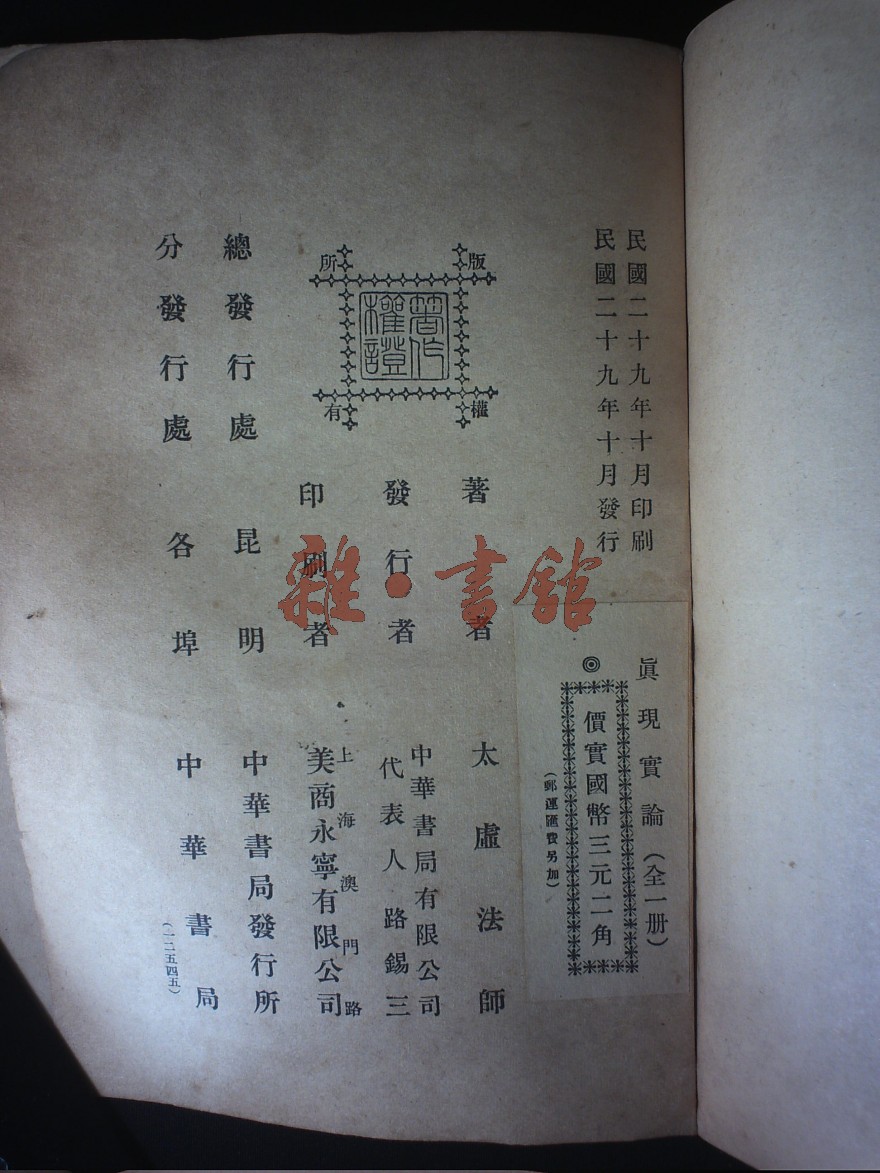 民國二十九年十月印刷
民國二十九年十月發行
眞現實論（全一册）
◎
價實國幣三元二角
（郵運匯費另加）
版權所有
著作權證
著者 太虛法師
發行者 中華書局有限公司
代表人 路錫三
印刷者 上海澳門路
美商永寧有限公司
總發行處 昆明 中華書局發行所
分發行處 各埠 中華書局
（一二五四五）
雜·書館